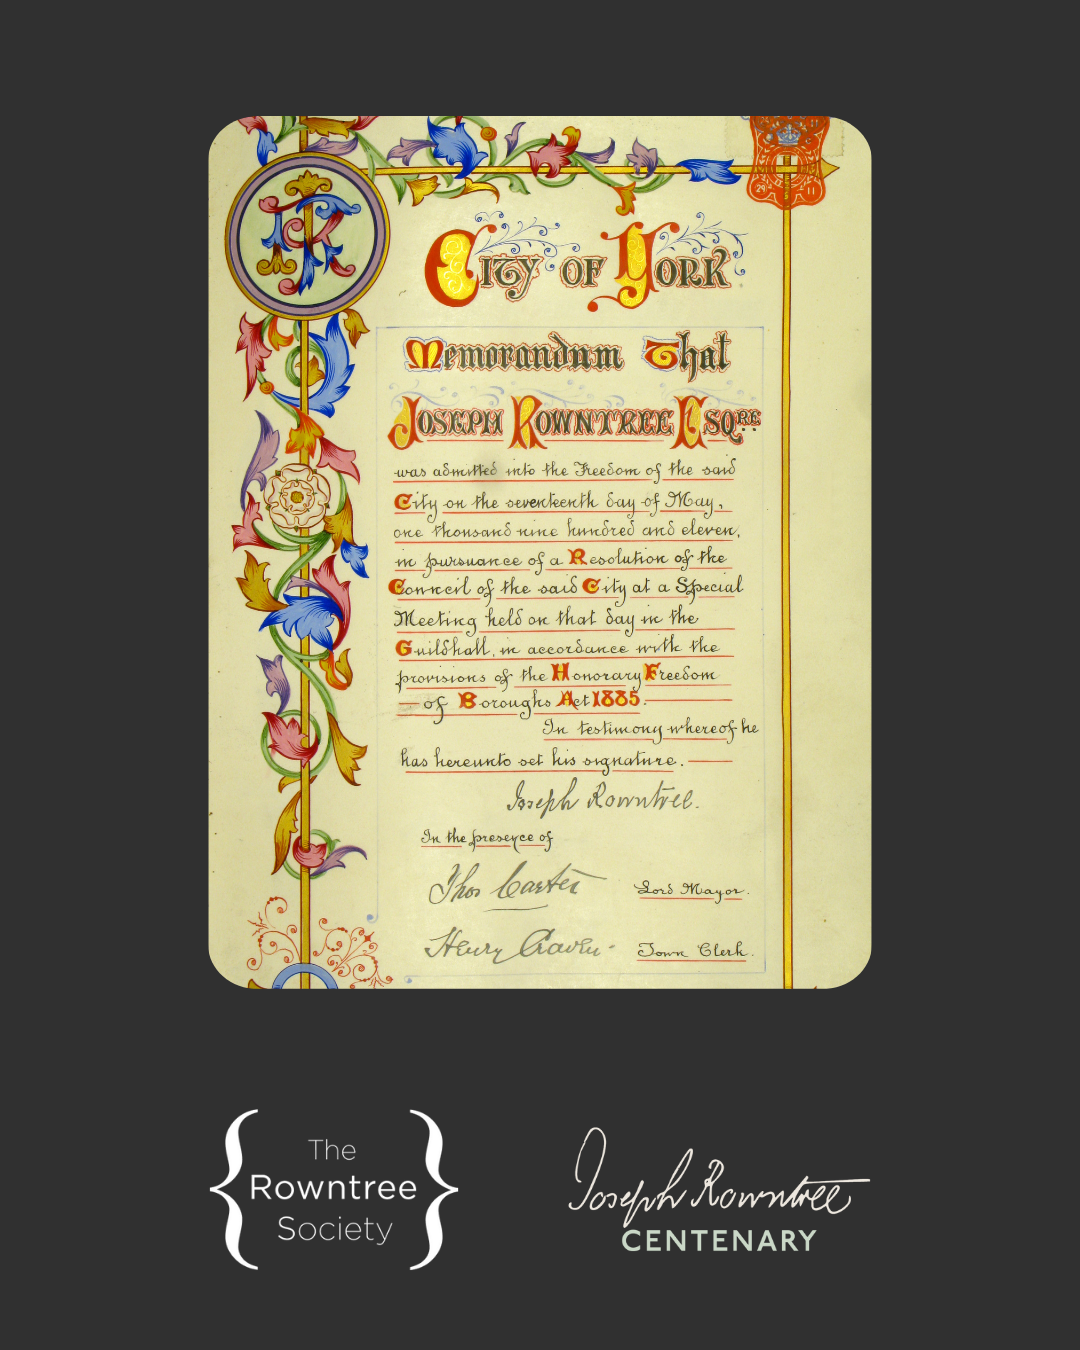 JR
29 11
City of York
Memorandum That
Joseph Rowntree Esqre
was admitted into the Freedom of the said
City on the seventeenth day of May,
one thousand nine hundred and eleven,
in pursuance of a Resolution of the
Council of the said City at a Special
Meeting held on that day in the
Guildhall, in accordance with the
provisions of the Honorary Freedom
of Boroughs Act 1885.
In testimony whereof he
has hereunto set his signature.
Joseph Rowntree.
In the presence of
Thos Carter Lord Mayor.
Henry Craven Town Clerk.
The
Rowntree
Society
Joseph Rowntree
CENTENARY